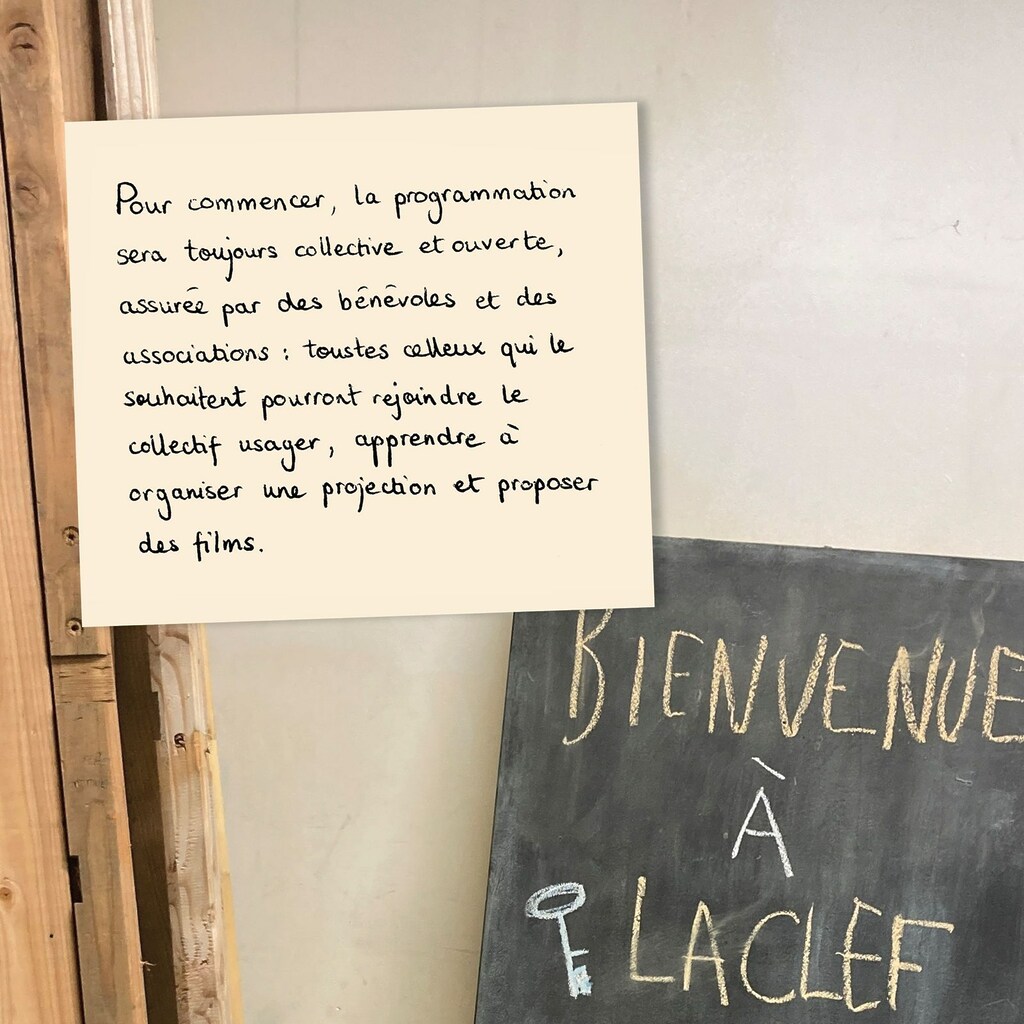 Pour commencer, la programmation
sera toujours collective et ouverte,
assurée par des bénévoles et des
associations : toustes celleux qui le
souhaitent pourront rejoindre le
collectif usager, apprendre à
organiser une projection et proposer
des films.
BIENVENUE
À
LA CLEF